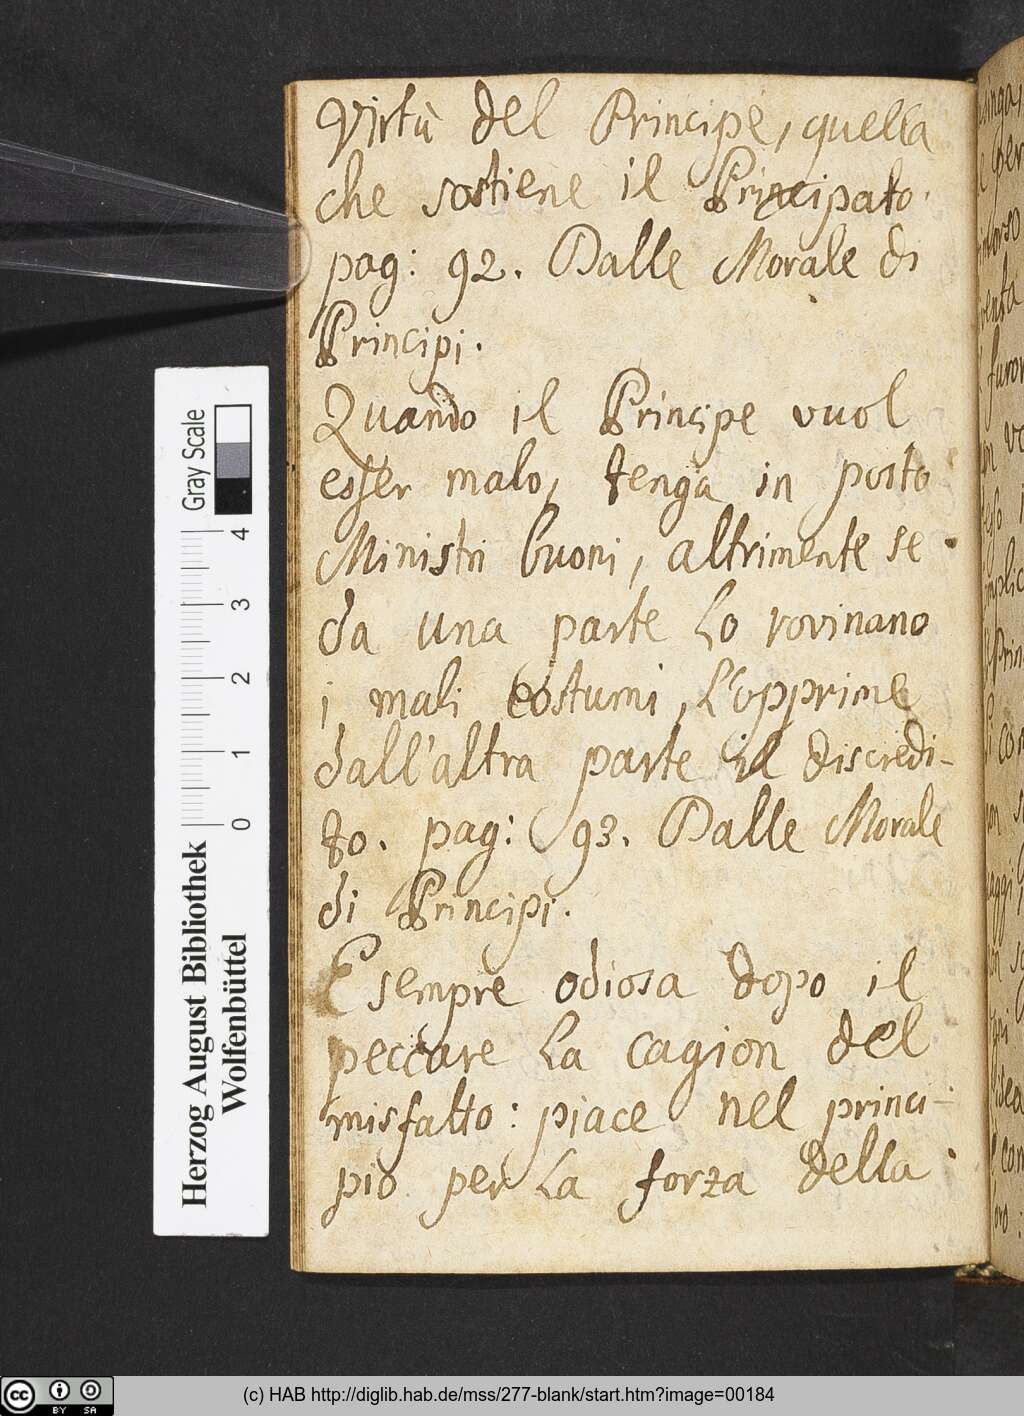 Virtù del Principe, quella
che sostiene il Principato.
pag: 92. Dalle Morale di
Principi.
Quando il Principe vuol
esser malo, tenga in posto
Ministri buoni, altrimente se
da una parte lo rovinano
i mali costumi, l'opprime
dall'altra parte il discredi-
to. pag: 93. Dalle Morale
di Principi.
E sempre odiosa dopo il
peccare la cagion del
misfatto: piace nel princi-
pio per la forza della
Gray Scale
4
3
2
1
0
Herzog August Bibliothek
Wolfenbüttel
cc BY SA
(c) HAB http://diglib.hab.de/mss/277-blank/start.htm?image=00184